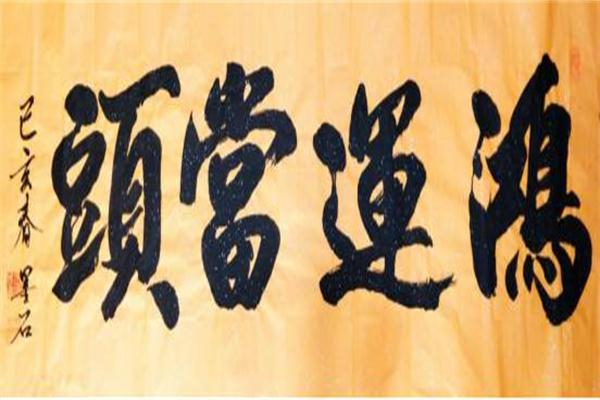 鴻運當頭
己亥春 墨石